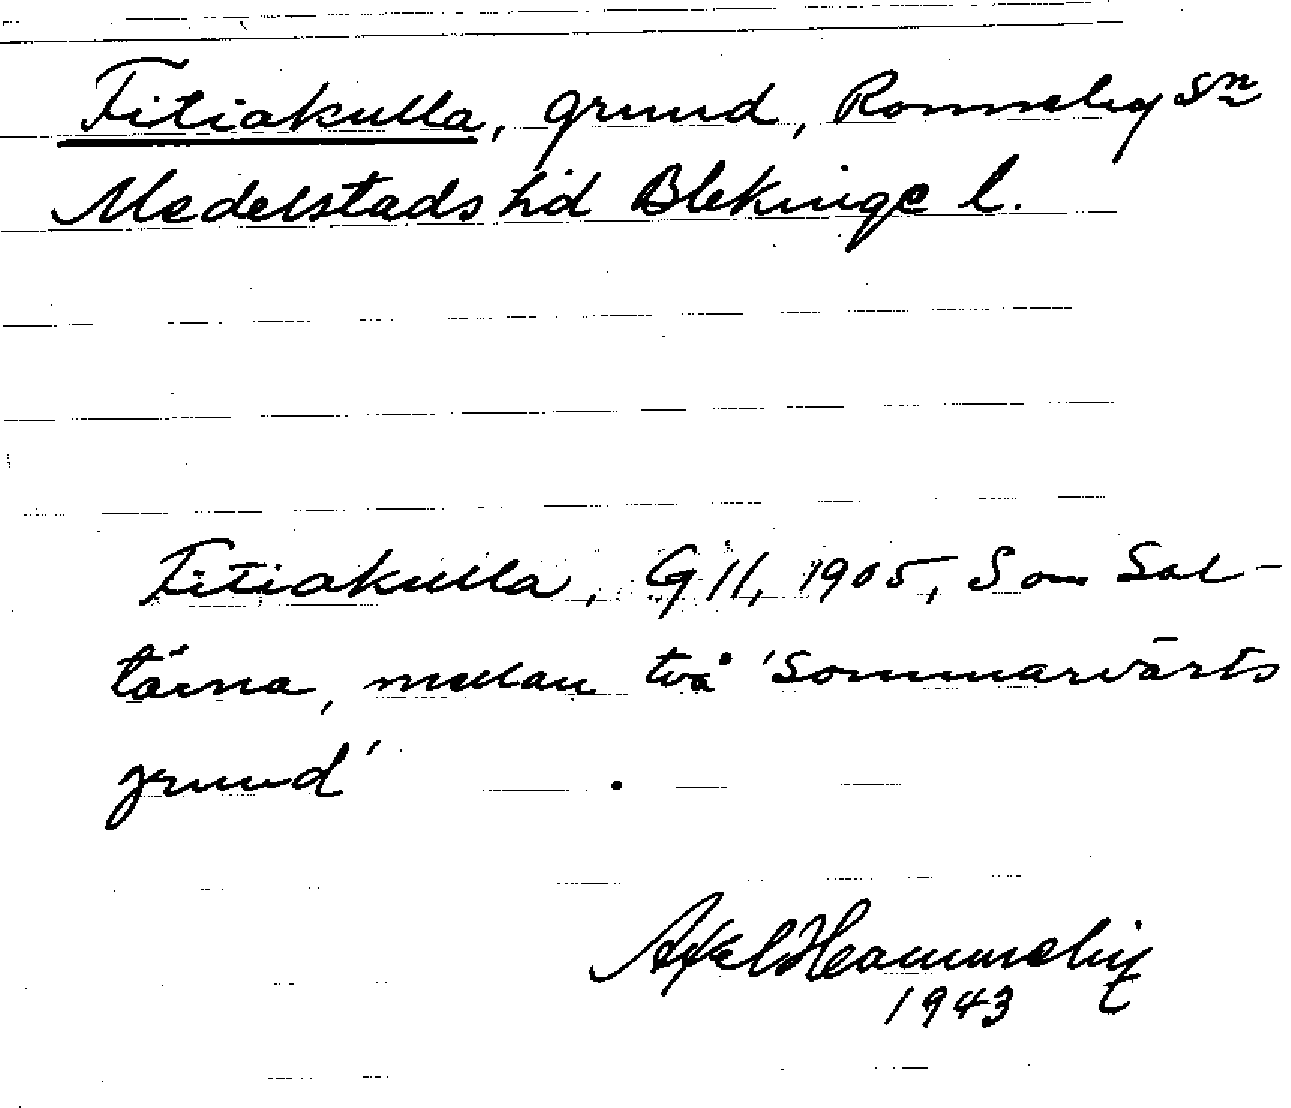 Fitiakulla, grund, Ronneby sn
Medelstads hd Blekinge l.
Fitiakulla, G 11, 1905, S om Sal-
tärna, mellan två 'Sommarvärts
grund'.
Axel
1943